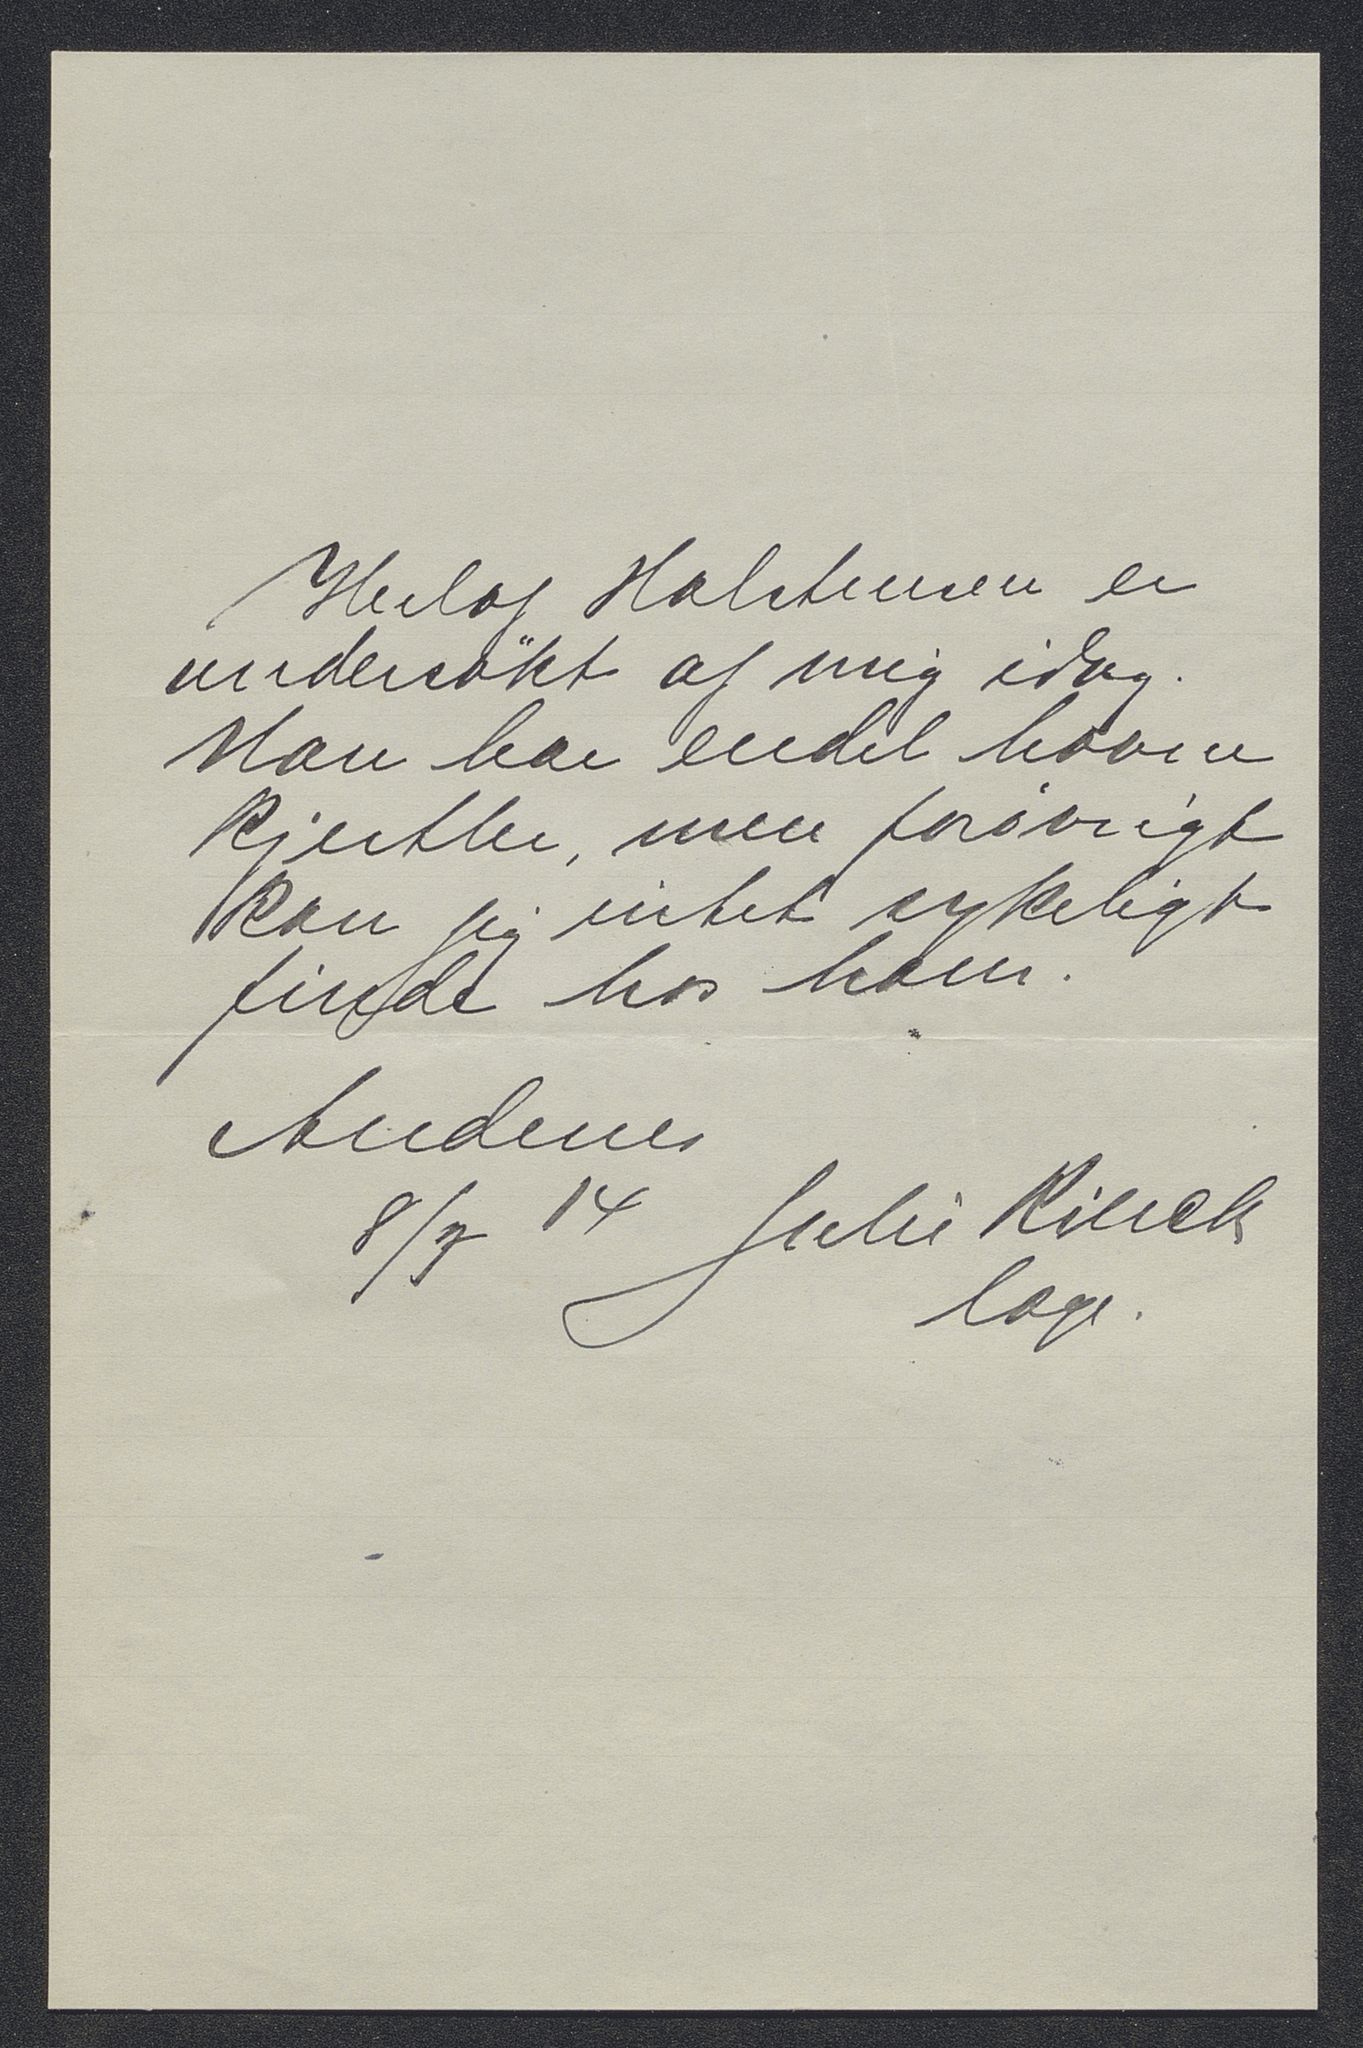 Herlof Halstensen er
undersökt af mig idag.
Han har endel hovne
kjertler, men forövrigt
kan jeg intet sykeligt
finde hos ham.
Andenes
8/7 14 Julie Kinck
læge.